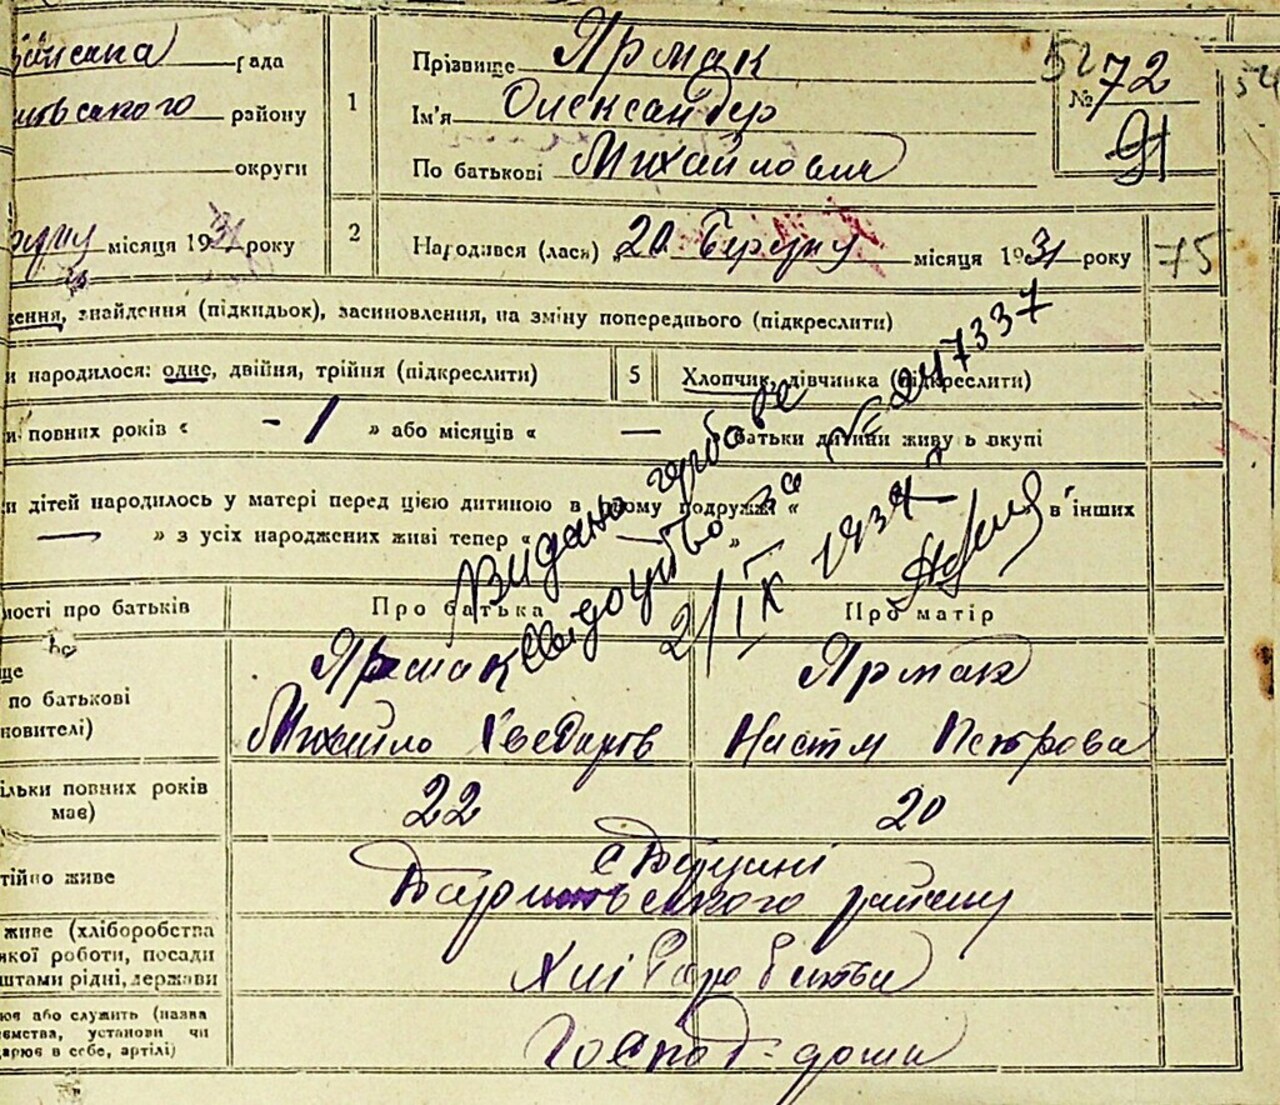 рада
району
округи
1
Прізвище Ярмак
Ім'я Олександер
По батькові Михайлович
52
№ 72
91
місяця 1931 року
2
Народився (лася) „20 Березну місяця 1931 року
75
ження, знайдення (підкидьок), засиновлення, на зміну попереднього (підкреслити)
и народилося: одне, двійня, трійня (підкреслити)
5
Хлопчик, дівчинка (підкреслити)
и повних років « - 1 » або місяців « — батьки дитини живуть вкупі
и дітей народилось у матері перед цією дитиною в цьому подружжі « в інших
— » з усіх народжених живі тепер « — »
Видано гербове
свідоцтво за № 247337
2/IX 1934 г.
мості про батьків
Про батька
Про матір
ще
по батькові
новителі)
Ярмак
Михайло Хведоров
Ярмак
Настя Петрова
ільки повних років
має)
22
20
тійно живе
району
живе (хліборобства
якої роботи, посади
штами рідні, держави
Хліборобства
ює або служить (назва
ємства, установи чи
дарює в себе, артілі)
Господ. дома